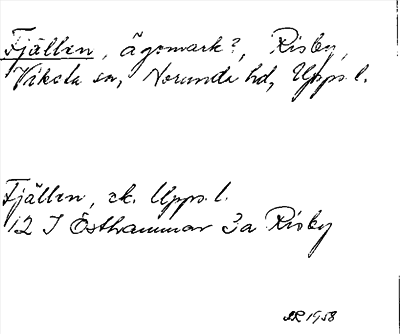 Fjällen, ägomark?, Risby,
Viksta sn, Norunda hd, Upps. l.
Fjällen, ek. Upps. l.
12 I Östhammar 3a Risby
SR 1958